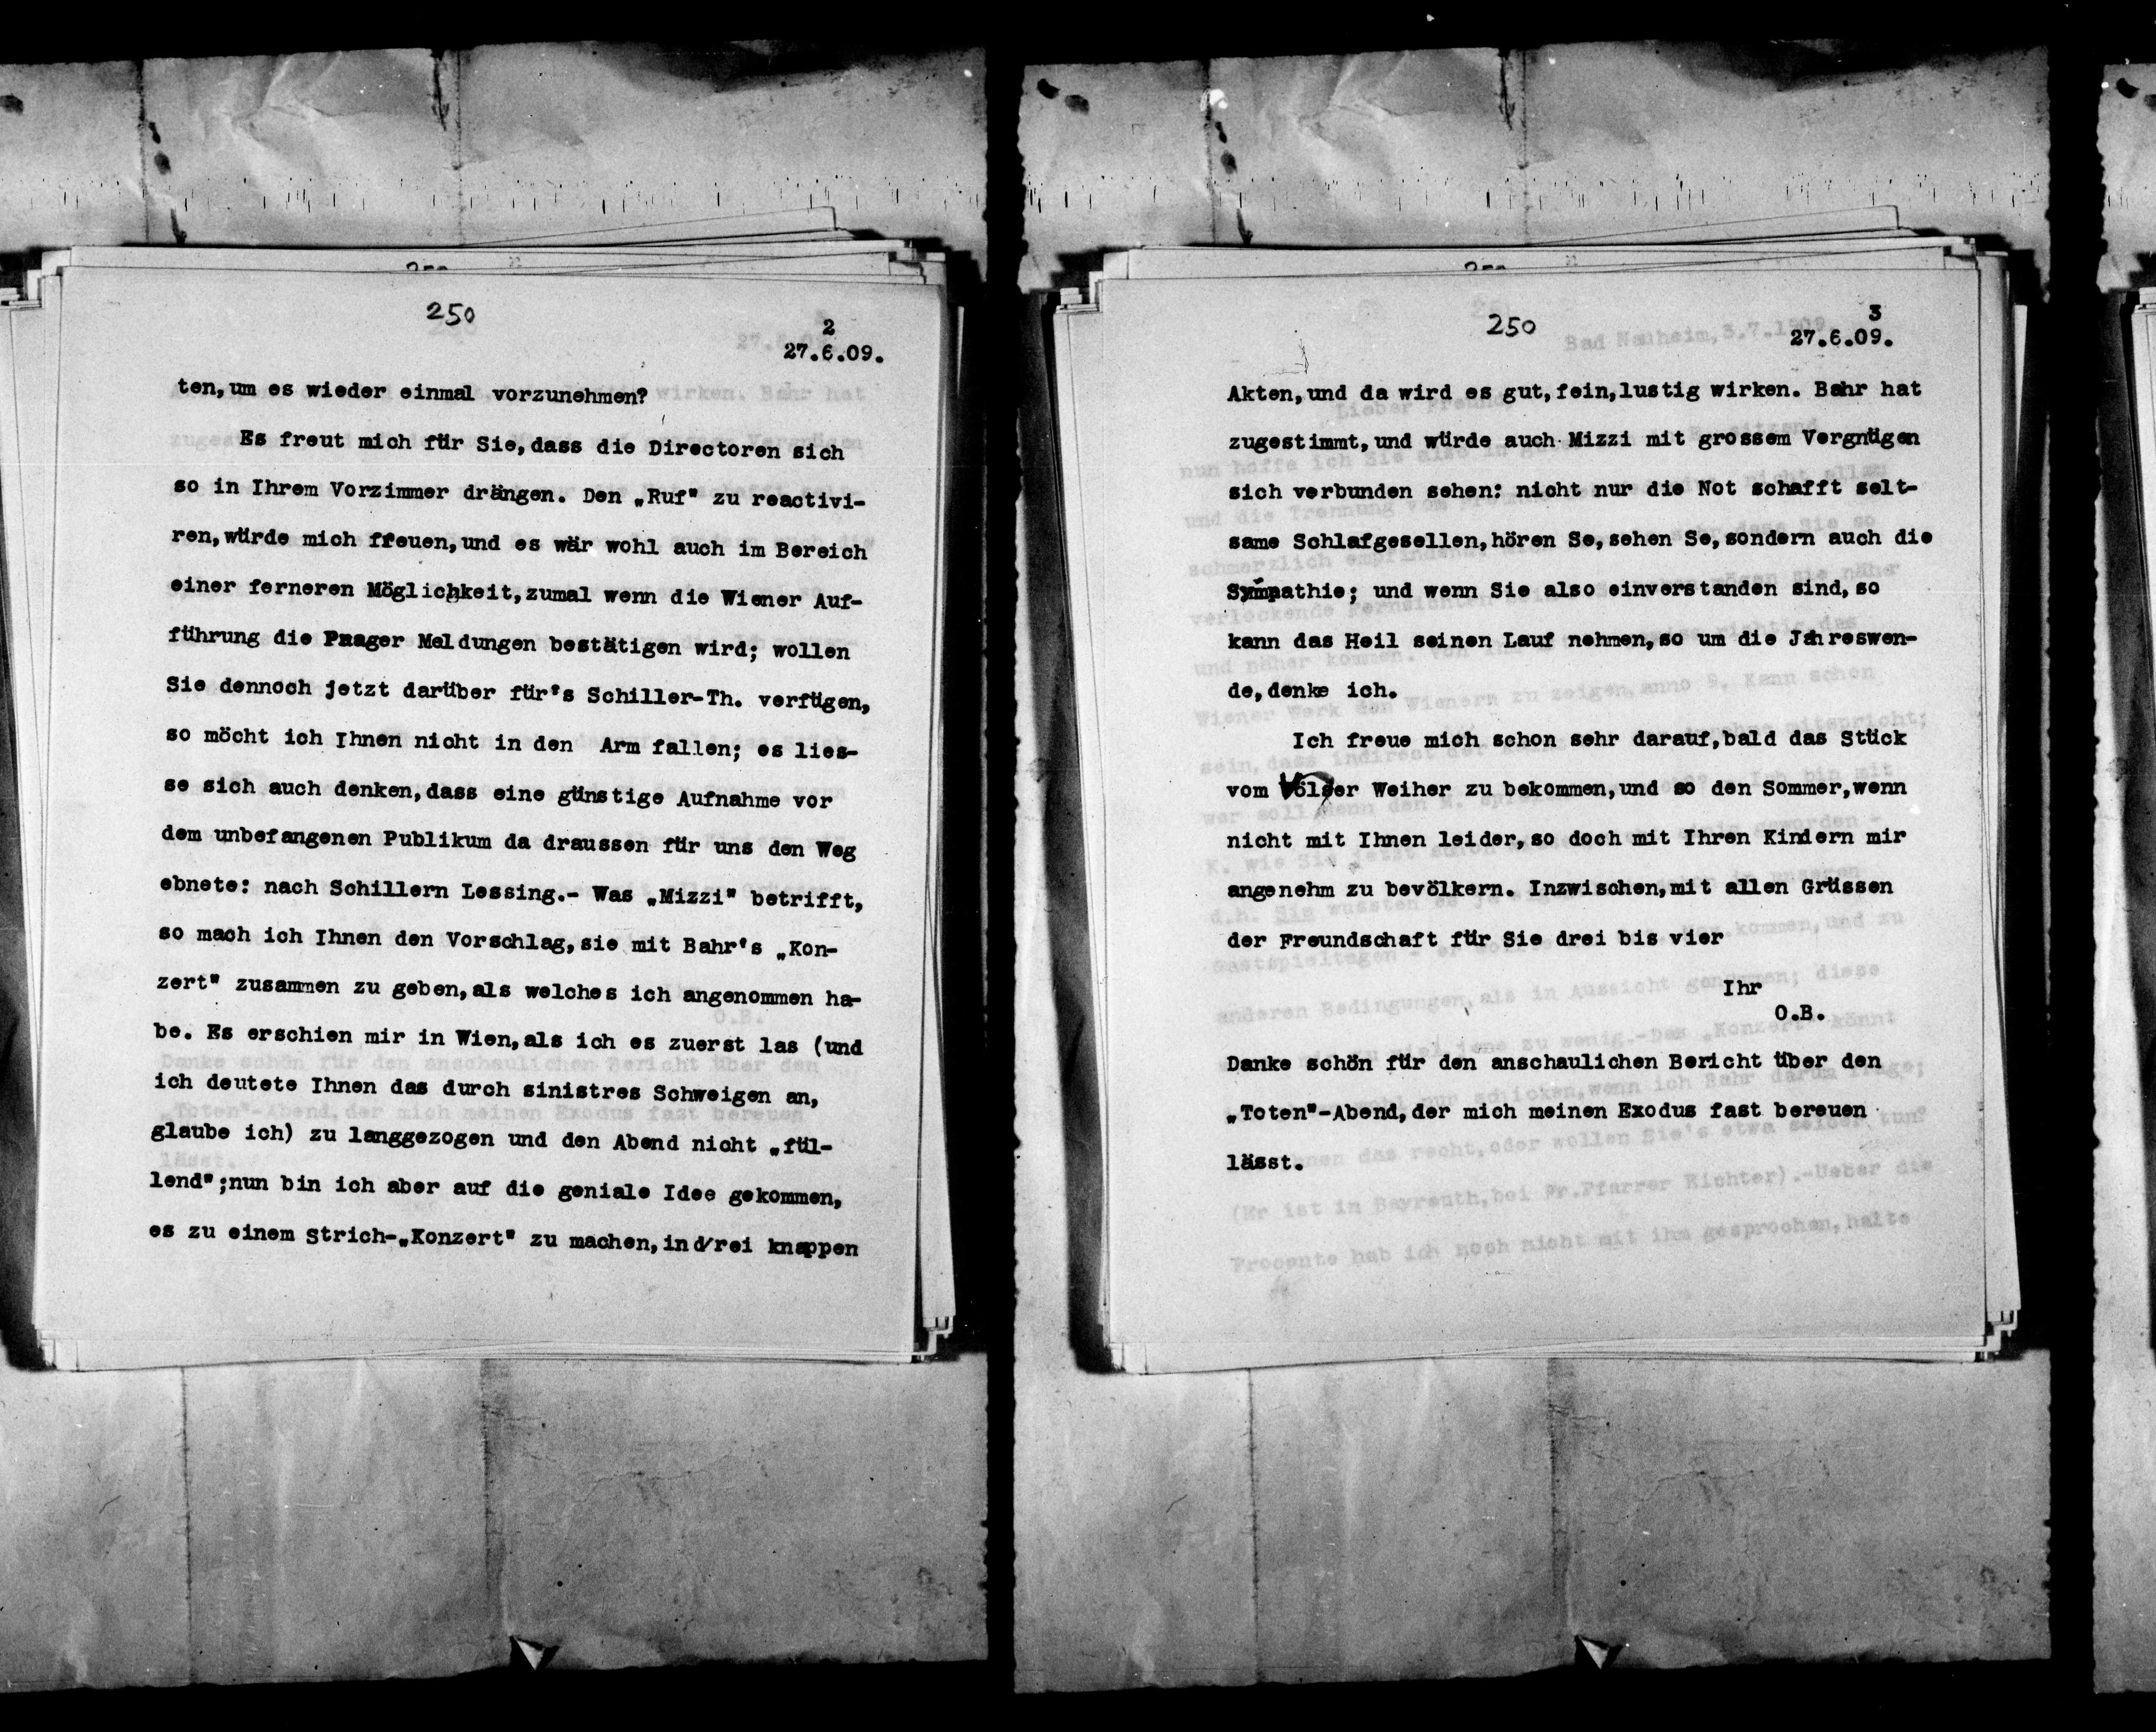 250
2
27.6.09.
ten,um es wieder einmal vorzunehmen?
Es freut mich für Sie,dass die Directoren sich
so in Ihrem Vorzimmer drängen. Den „Ruf" zu reactivi-
ren,würde mich freuen,und es wär wohl auch im Bereich
einer ferneren Möglichkeit,zumal wenn die Wiener Auf-
führung die Prager Meldungen bestätigen wird; wollen
Sie dennoch jetzt darüber für's Schiller-Th. verfügen,
so möcht ich Ihnen nicht in den Arm fallen; es lies-
se sich auch denken,dass eine günstige Aufnahme vor
dem unbefangenen Publikum da draussen für uns den Weg
ebnete: nach Schillern Lessing.- Was „Mizzi" betrifft,
so mach ich Ihnen den Vorschlag,sie mit Bahr's „Kon-
zert" zusammen zu geben,als welches ich angenommen ha-
be. Es erschien mir in Wien,als ich es zuerst las (und
ich deutete Ihnen das durch sinistres Schweigen an,
glaube ich) zu langgezogen und den Abend nicht „fül-
lend";nun bin ich aber auf die geniale Idee gekommen,
es zu einem Strich-„Konzert" zu machen,in drei knappen
250
3
27.6.09.
Akten,und da wird es gut,fein,lustig wirken. Bahr hat
zugestimmt,und würde auch Mizzi mit grossem Vergnügen
sich verbunden sehen: nicht nur die Not schafft selt-
same Schlafgesellen,hören Se,sehen Se,sondern auch die
Sympathie; und wenn Sie also einverstanden sind,so
kann das Heil seinen Lauf nehmen,so um die Jahreswen-
de,denke ich.
Ich freue mich schon sehr darauf,bald das Stück
vom Völser Weiher zu bekommen,und so den Sommer,wenn
nicht mit Ihnen leider,so doch mit Ihren Kindern mir
angenehm zu bevölkern. Inzwischen,mit allen Grüssen
der Freundschaft für Sie drei bis vier
Ihr
O.B.
Danke schön für den anschaulichen Bericht über den
„Toten"-Abend,der mich meinen Exodus fast bereuen
lässt.